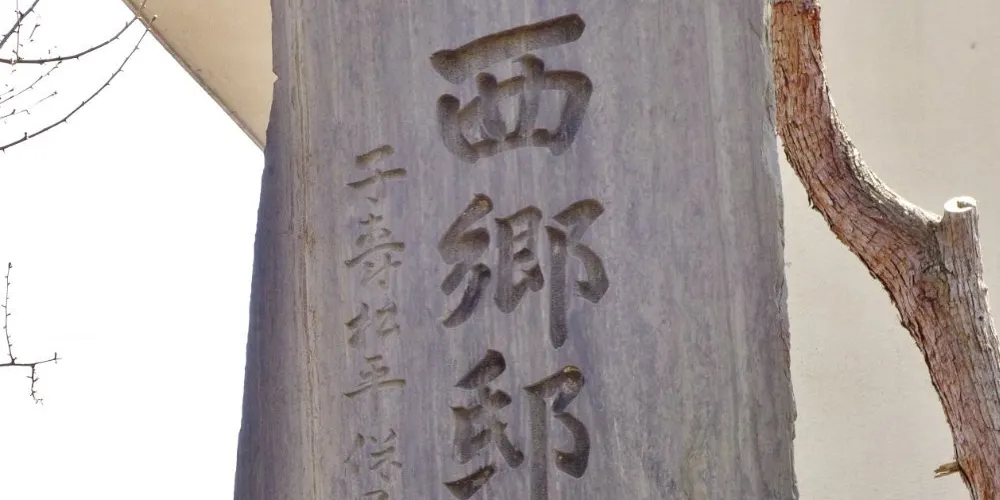 西郷邸
子寿松平保